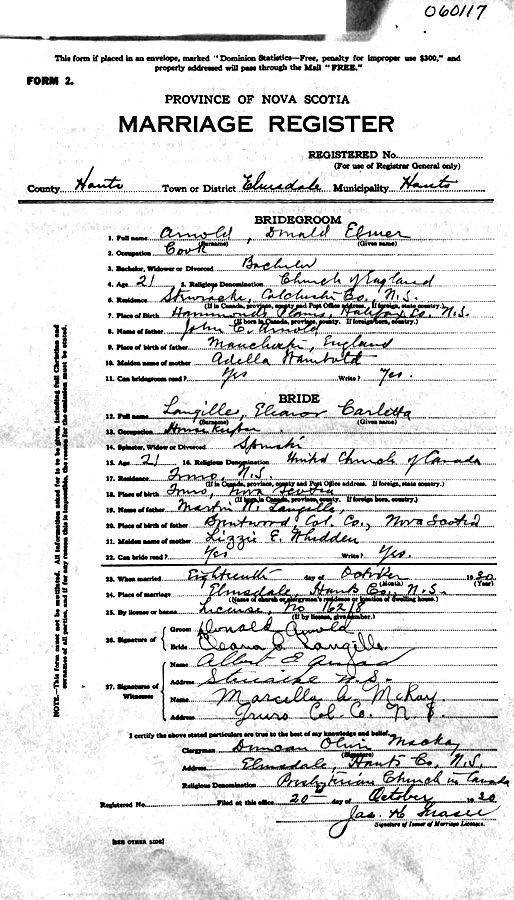 060117
This form if placed in an envelope, marked "Dominion Statistics—Free, penalty for improper use $300," and
properly addressed will pass through the Mail "FREE."
FORM 2.
PROVINCE OF NOVA SCOTIA
MARRIAGE REGISTER
REGISTERED No.
(For use of Registrar General only)
County Hants Town or District Elmsdale Municipality Hants
BRIDEGROOM
1. Full name Arnold, Donald Elmer
(Surname) (Given name)
2. Occupation Cook
3. Bachelor, Widower or Divorced Bachelor
4. Age 21 5. Religious Denomination Church of England
6. Residence Colchester Co., N.S.
(If in Canada, province, county and Post Office address. If foreign, state country.)
7. Place of Birth Hammonds Plains, Halifax Co. N.S.
(If born in Canada, province, county. If foreign born, country.)
8. Name of father John E. Arnold
9. Place of birth of father Manchester, England
10. Maiden name of mother Adella
11. Can bridegroom read? Yes Write? Yes.
BRIDE
12. Full name Langille, Eleanor Carletta
(Surname) (Given name)
13. Occupation House Keeper
14. Spinster, Widow or Divorced Spinster
15. Age 21 16. Religious Denomination United Church of Canada
17. Residence Truro, N.S.
(If in Canada, province, county and Post Office address. If foreign, state country.)
18. Place of birth Truro, Nova Scotia
(If born in Canada, province, county. If foreign born, country.)
19. Name of father Martin N. Langille,
20. Place of birth of father Brentwood Col. Co., Nova Scotia
21. Maiden name of mother Lizzie E. Whidden
22. Can bride read? Yes Write? Yes.
23. When married Eighteenth day of October 1930
(Month) (Year)
24. Place of marriage Elmsdale, Hants Co., N.S.
(Name of church or clergyman's residence or location of dwelling house.)
25. By license or banns License, No
(If by license, give number.)
26. Signature of
Groom Donald Arnold
Bride Langille
27. Signatures of Witnesses
Name Albert E
Address N.S.
Name Marcella A. McKay
Address Truro Col. Co. N.S.
I certify the above stated particulars are true to the best of my knowledge and belief.
Clergyman Duncan Oliver Mackay
(Signature)
Address Elmsdale, Hants Co. N.S.
Religious Denomination Presbyterian Church in Canada
Registered No. Filed at this office 20 day of October 1930
Jas. H. Fraser
Signature of Issuer of Marriage Licenses.
[SEE OTHER SIDE]
NOTE.—This form must not be mutilated. All information asked for is to be given, including full Christian and
surnames of all parties, and if for any reason this is impossible, the reason for the omission must be stated.